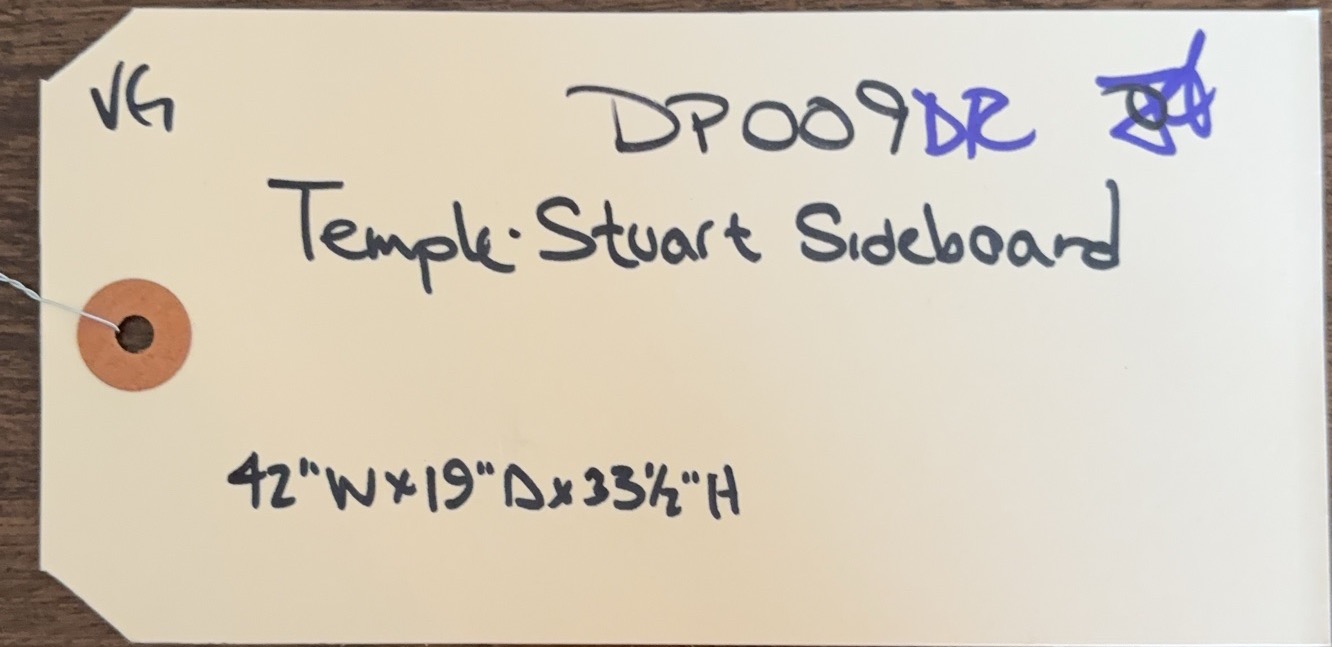 VG
DP009DR
Temple·Stuart Sideboard
42"W x 19"D x 33½"H